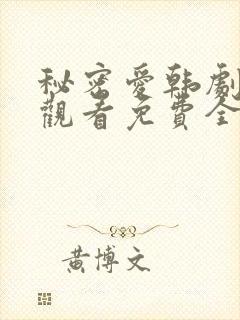 秘密愛韩劇
觀看免費全
黄博文